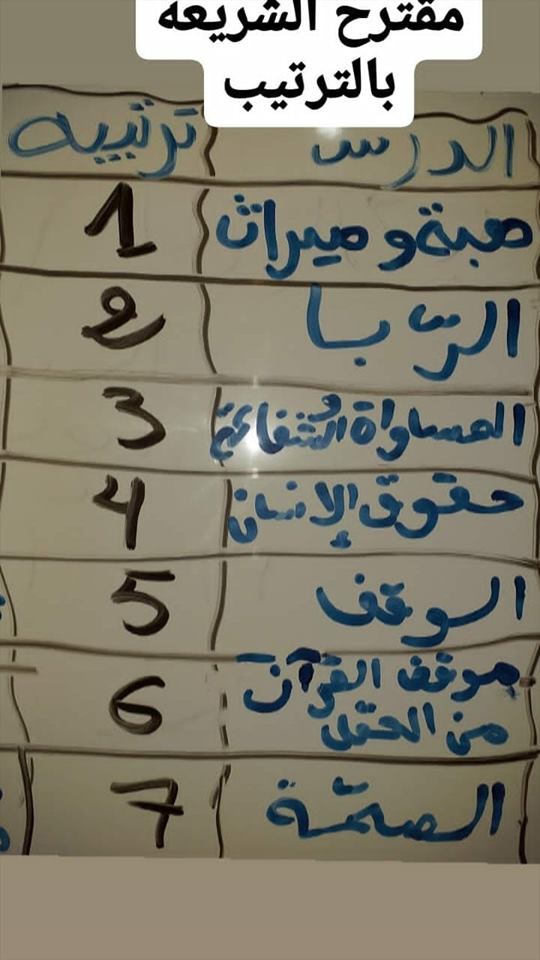 مقترح الشريعة
بالترتيب
الدرس ترتيبه
هبة و ميراث 1
الربا 2
المساواة والشفاعة 3
حقوق الإنسان 4
الوقف 5
موقف القرآن
من العقل 6
الصحة 7